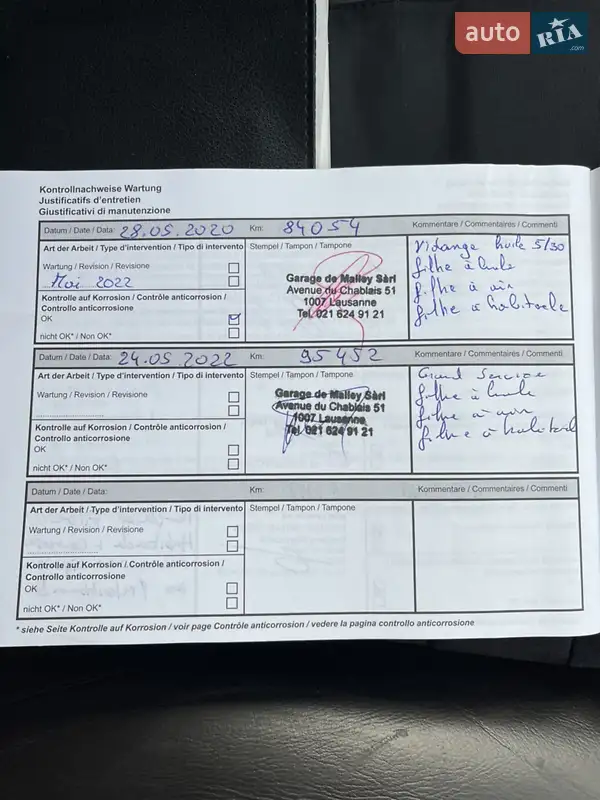 auto RIA .com
Kontrollnachweise Wartung
Justificatifs d'entretien
Giustificativi di manutenzione
Datum / Date / Data: 28.05.2020 Km: 84054 Kommentare / Commentaires / Commenti
Art der Arbeit / Type d'intervention / Tipo di intervento Stempel / Tampon / Tampone
Vidange huile 5/30
Wartung / Revision / Revisione
filtre à huile
Mai 2022
filtre à air
filtre à habitacle
Garage de Malley Sàrl
Avenue du Chablais 51
1007 Lausanne
Tel. 021 624 91 21
Kontrolle auf Korrosion / Contrôle anticorrosion /
Controllo anticorrosione
OK
nicht OK* / Non OK*
Datum / Date / Data: 24.05.2022 Km: 95452 Kommentare / Commentaires / Commenti
Art der Arbeit / Type d'intervention / Tipo di intervento Stempel / Tampon / Tampone
Grand Service
filtre à huile
filtre à air
Wartung / Revision / Revisione
Garage de Malley Sàrl
Avenue du Chablais 51
1007 Lausanne
Tel. 021 624 91 21
Kontrolle auf Korrosion / Contrôle anticorrosion /
Controllo anticorrosione
OK
nicht OK* / Non OK*
Datum / Date / Data: Km: Kommentare / Commentaires / Commenti
Art der Arbeit / Type d'intervention / Tipo di intervento Stempel / Tampon / Tampone
Wartung / Revision / Revisione
Kontrolle auf Korrosion / Contrôle anticorrosion /
Controllo anticorrosione
OK
nicht OK* / Non OK*
* siehe Seite Kontrolle auf Korrosion / voir page Contrôle anticorrosion / vedere la pagina controllo anticorrosione